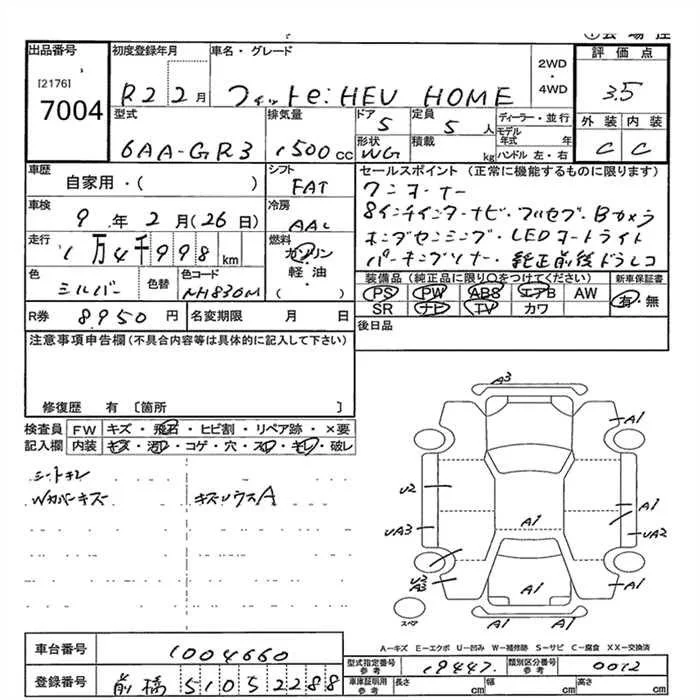 出品番号
[2176]
7004
初度登録年月
R2 2月
車名・グレード
フィットe:HEV HOME
2WD
・
4WD
評価点
3.5
型式
6AA-GR3
排気量
1500cc
ドア
5
定員
5人
ディーラー・並行
モデル年式 年
形状
WG
積載
kg
ハンドル 左・右
外装 内装
C C
車歴
自家用・( )
シフト
FAT
車検
9年2月(26日)
冷房
AAC
走行
1万4千998km
燃料
ガソリン
軽油
( )
色
シルバー
色替
色コード
NH830M
セールスポイント (正常に機能するものに限ります)
ワンオーナー
8インチインターナビ・フルセグ・Bカメラ
ホンダセンシング・LEDオートライト
パーキングソナー・純正前後ドラレコ
装備品(純正品に限り○をつけてください)
新車保証書
PS PW ABS エアB AW
有・無
SR ナビ TV カワ
R券 8,950円
名変期限 月 日
後日品
注意事項申告欄(不具合内容等は具体的に記入して下さい)
修復歴 有 〔箇所 〕
検査員 FW キズ・飛石・ヒビ割・リペア跡・×要
記入欄 内装 キズ・汚レ・コゲ・穴・スレ・キレ・破レ
Wカバーキズ
A3
A1
U2
A1
A1
UA3
UA2
U2
A3
A1
A1
A1 A1
スペア
A-キズ E-エクボ U-凹み W-補修跡 S-サビ C-腐食 XX-交換済
車台番号
1004660
登録番号
前橋 510 5 2288
型式指定番号
参考
19447
類別区分番号
参考
0012
車庫証明用
参考
長さ cm
幅 cm
高さ cm